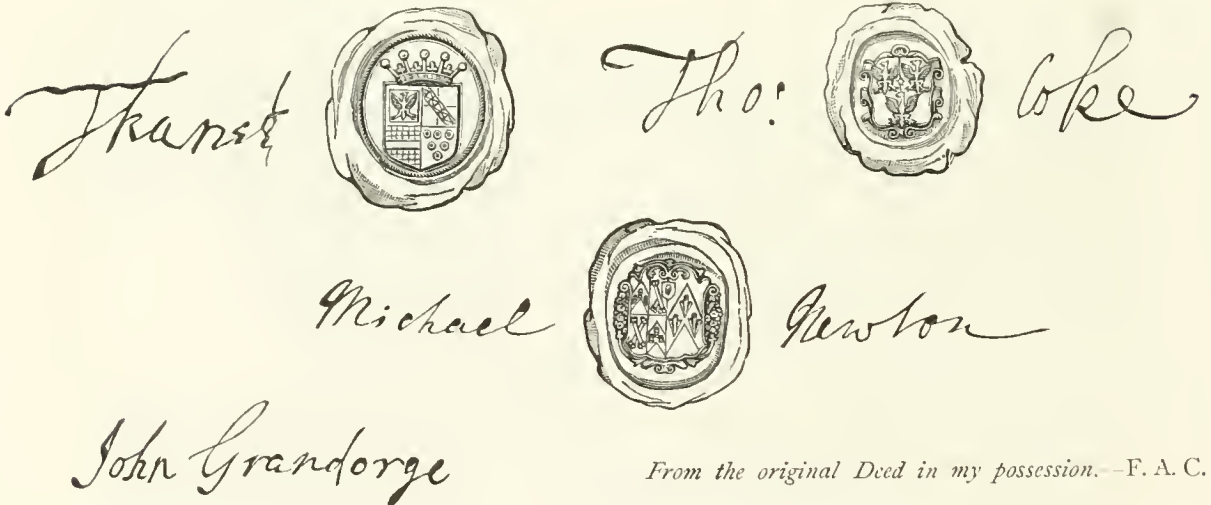 Thanet Tho: Coke
Michael Newton
John Grandorge
From the original Deed in my possession. –F. A. C.